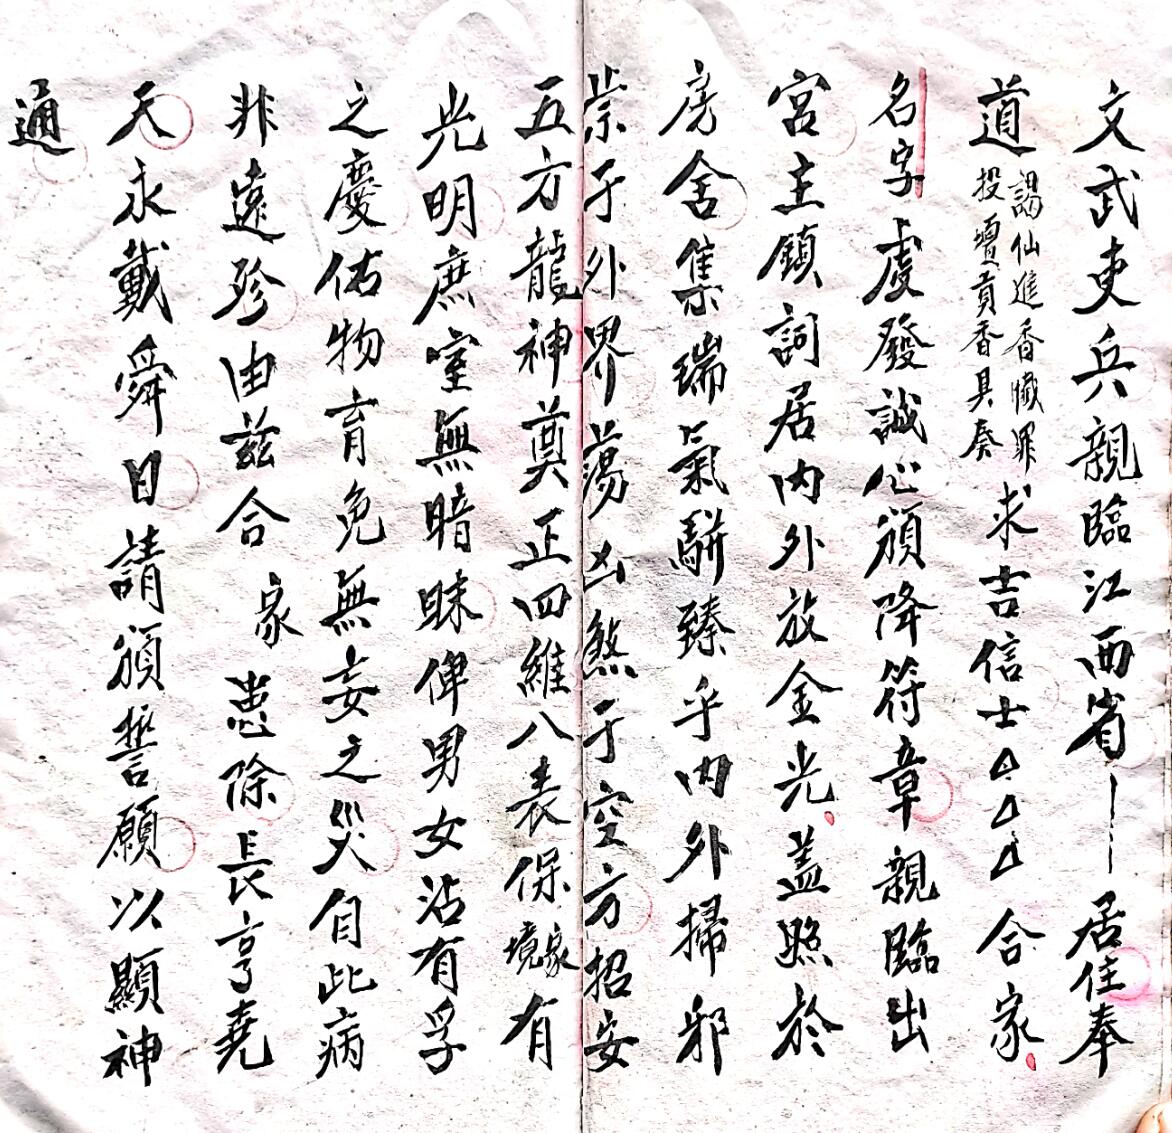 文武吏兵親臨江西省——居住奉
道謁仙進香懺罪投壇貢香具奏求吉信士△△△合家
名字虔發誠心頒降符章親臨出
宮主鎮詞居內外放金光蓋照於
房舍集瑞氣駢臻乎內外掃邪
祟于外界蕩凶煞于空方招安
五方龍神奠正四維八表保家境有
光明庶室無暗昧俾男女沾有孚
之慶佑物育免無妄之災自此病
非遠殄由茲合家患除長亨堯
天永戴舜日請頒誓願以顯神
通